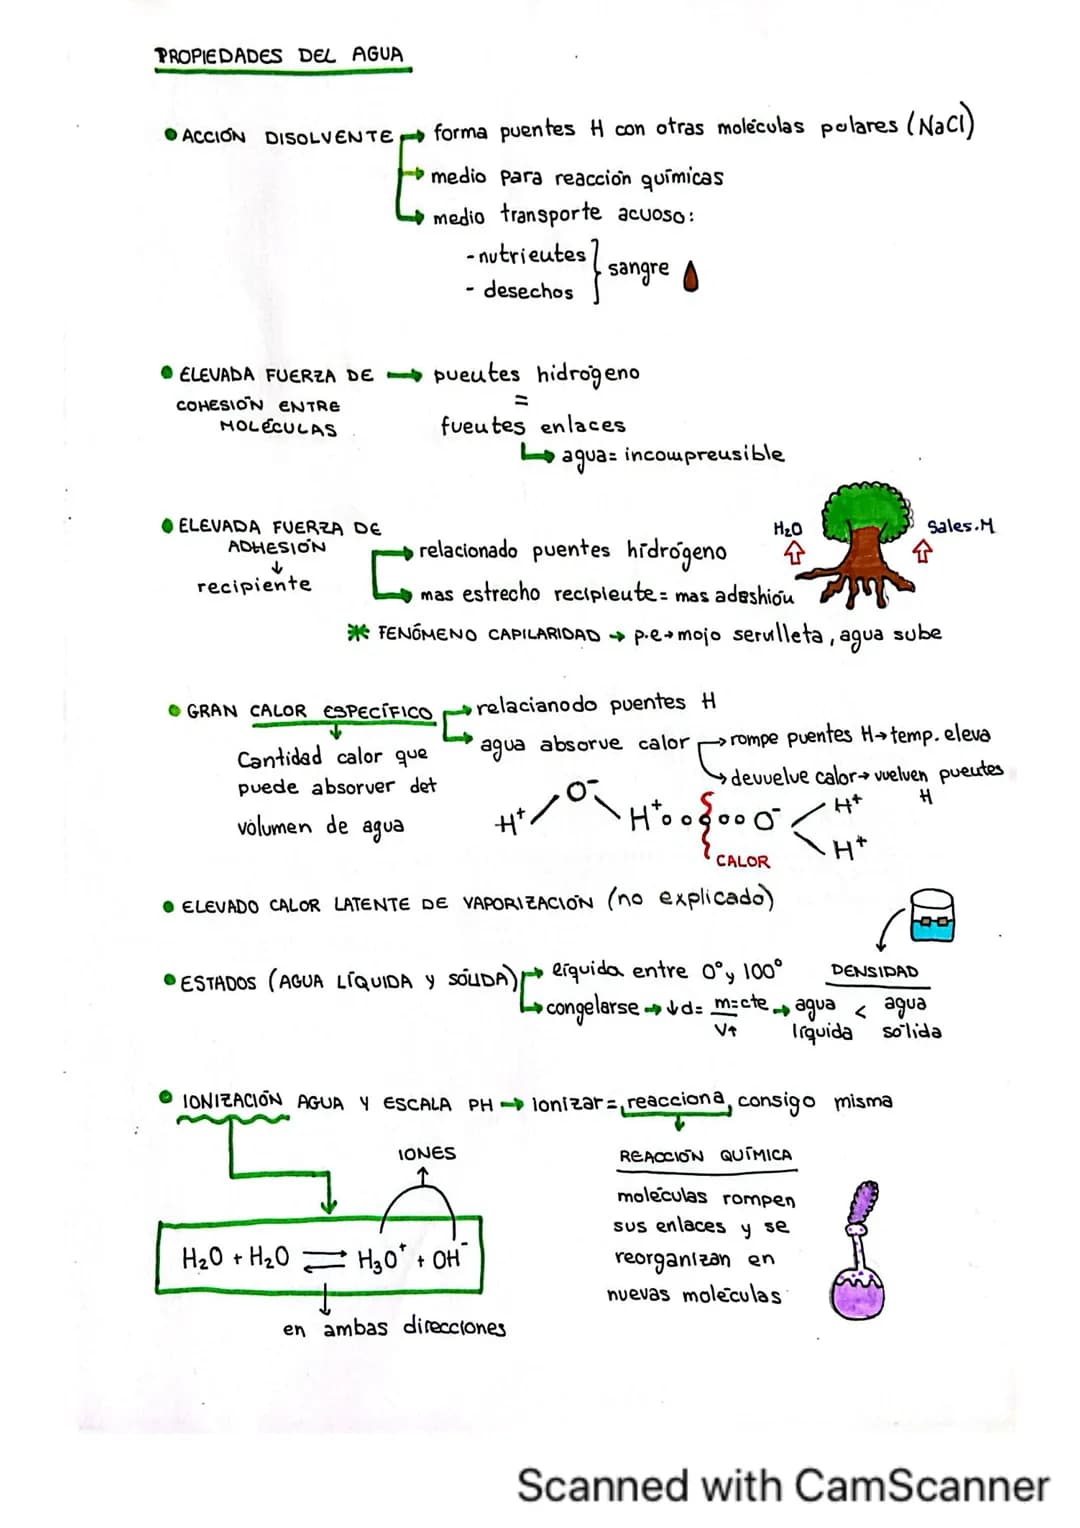 PROPIEDADES DEL AGUA
ACCIÓN DISOLVENTE → forma puentes H con otras moléculas polares (NaCl)
→ medio para reacción químicas
→ medio transporte acuoso:
- nutrientes
- desechos
sangre
ELEVADA FUERZA DE → puentes hidrógeno
COHESIÓN ENTRE
MOLÉCULAS
=
fuentes enlaces
→ agua = incomprensible
ELEVADA FUERZA DE
ADHESIÓN
↓
recipiente
→ relacionado puentes hidrógeno
→ mas estrecho recipiente = mas adeshión
H₂O
Sales.M
* FENÓMENO CAPILARIDAD → p.e → mojo servilleta, agua sube
GRAN CALOR ESPECÍFICO → relacianodo puentes H
→ agua absorve calor → rompe puentes H → temp. eleva
→ devuelve calor → vuelven puentes
H
↓
Cantidad calor que
puede absorver det
volumen de agua
H⁺ O⁻ H⁺ooooo O⁻ H⁺
H⁺
CALOR
ELEVADO CALOR LATENTE DE VAPORIZACIÓN (no explicado)
ESTADOS (AGUA LÍQUIDA Y SÓLIDA) → líquida entre 0° y 100°
→ congelarse → ↓d = m=cte → agua < agua
V↑ líquida sólida
DENSIDAD
IONIZACIÓN AGUA Y ESCALA PH → ionizar = reacciona consigo misma
IONES
H₂O + H₂O ⇌ H₃O⁺ + OH⁻
↓
en ambas direcciones
REACCIÓN QUÍMICA
moléculas rompen
sus enlaces y se
reorganizan en
nuevas moléculas
Scanned with CamScanner